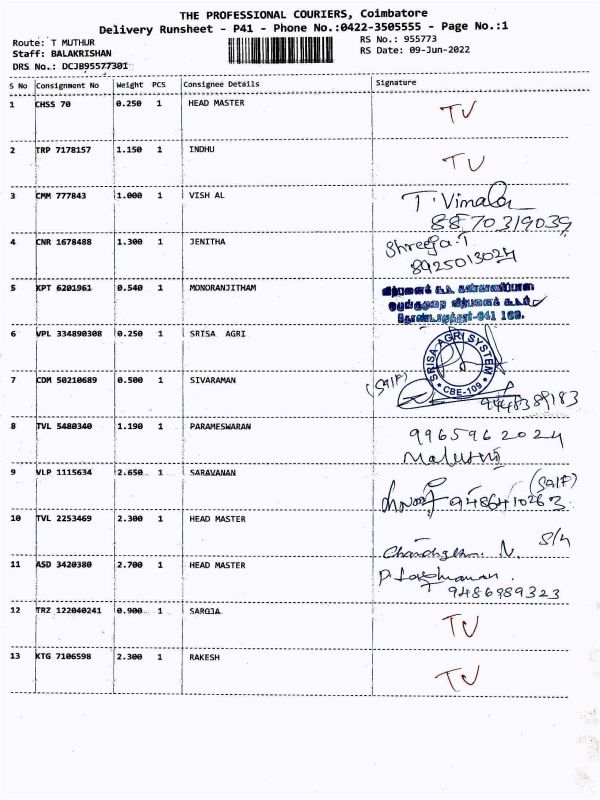 THE PROFESSIONAL COURIERS, Coimbatore
Delivery Runsheet - P41 - Phone No.:0422-3505555 - Page No.:1
Route: T MUTHUR
RS No.: 955773
Staff: BALAKRISHAN
RS Date: 09-Jun-2022
DRS No.: DCJB95577301
S No Consignment No Weight PCS Consignee Details Signature
1 CHSS 70 0.250 1 HEAD MASTER TV
2 TRP 7178157 1.150 1 INDHU TV
3 CMM 777843 1.000 1 VISH AL T. Vimala
8870319039
4 CNR 1678488 1.300 1 JENITHA Shreeja.T
8925013024
5 KPT 6201961 0.540 1 MONORANJITHAM
641 109.
6 VPL 334890308 0.250 1 SRISA AGRI SRISA AGRI SYSTEM
* CBE-109 *
7 CDM 50210689 0.500 1 SIVARAMAN (Saif)
9448389183
8 TVL 5480340 1.190 1 PARAMESWARAN 9965962024
9 VLP 1115634 2.650 1 SARAVANAN (Saif)
9486410263
10 TVL 2253469 2.300 1 HEAD MASTER
11 ASD 3420380 2.700 1 HEAD MASTER
9486989323
12 TRZ 122040241 0.900 1 SAROJA TV
13 KTG 7106598 2.300 1 RAKESH TV